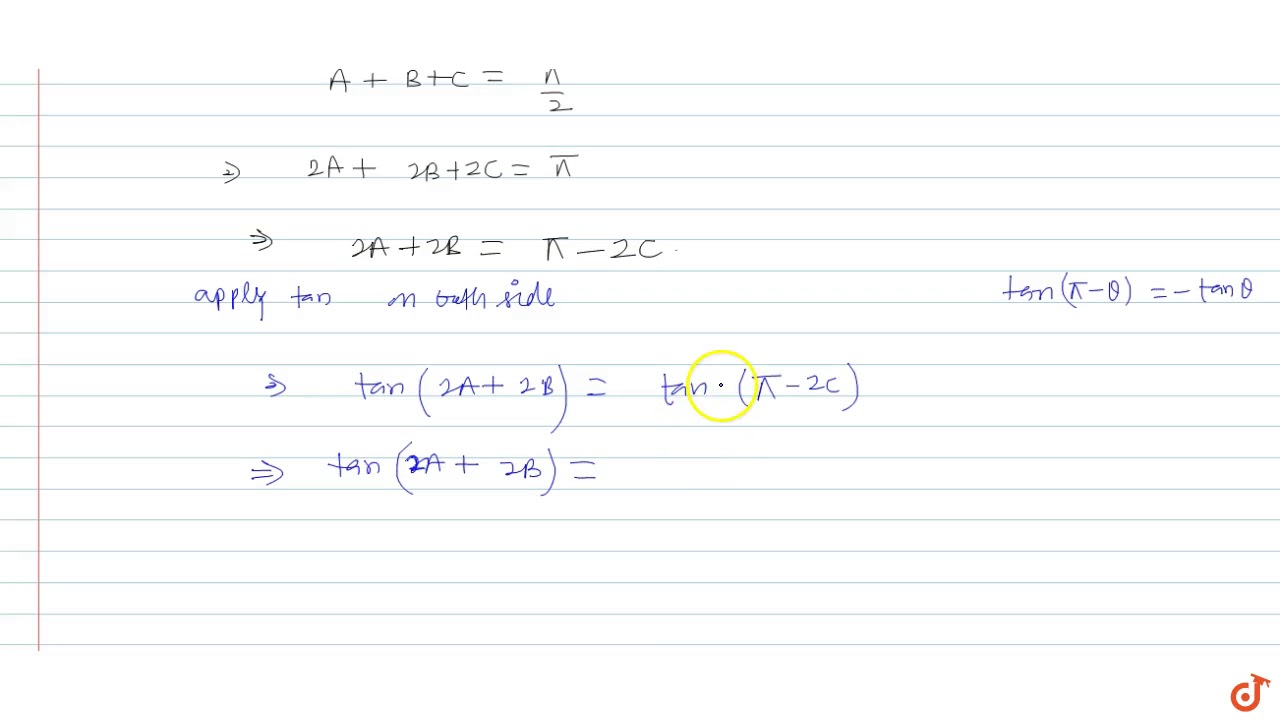 A + B + C = π/2
⇒ 2A + 2B + 2C = π
⇒ 2A + 2B = π − 2C.
apply tan on both side
tan(π − θ) = − tan θ
⇒ tan(2A + 2B) = tan · (π − 2C)
⇒ tan(2A + 2B) =